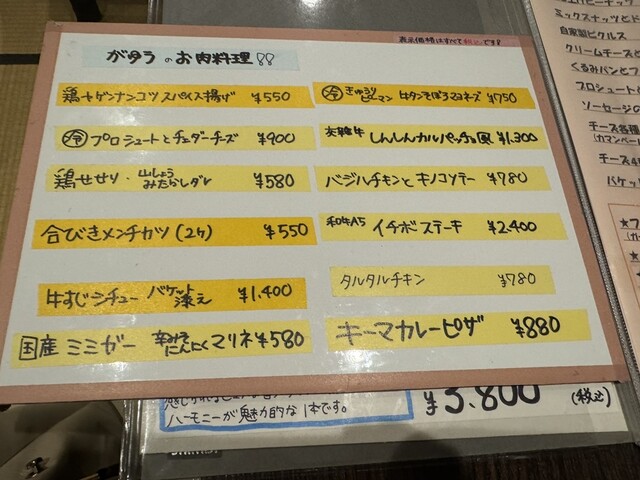 表示価格はすべて税込です!
がゆうのお肉料理!!
鶏ナゲンナンコツ スパイス揚げ ¥550
冷 プロシュートとチェダーチーズ ¥900
鶏せせり 山しょうみたらしダレ ¥580
合びきメンチカツ(2ケ) ¥550
牛すじシチュー バケット添え ¥1,400
国産 ミミガー にんにくマリネ ¥580
冷 きゅうり ピーマン 牛タンそぼろマヨネーズ ¥750
しんしんカルパッチョ風 ¥1,300
バジルチキンとキノコソテー ¥780
和牛A5 イチボステーキ ¥2,400
タルタルチキン ¥780
キーマカレーピザ ¥880
ハーモニーが魅力的な1本です。
¥3,800 (税込)
ミックスナッツと
自家製ピクルス
クリームチーズと
くるみパンとフ
プロシュートと
ソーセージの
チーズ各種
(カマンベー
チーズ4
バケッ